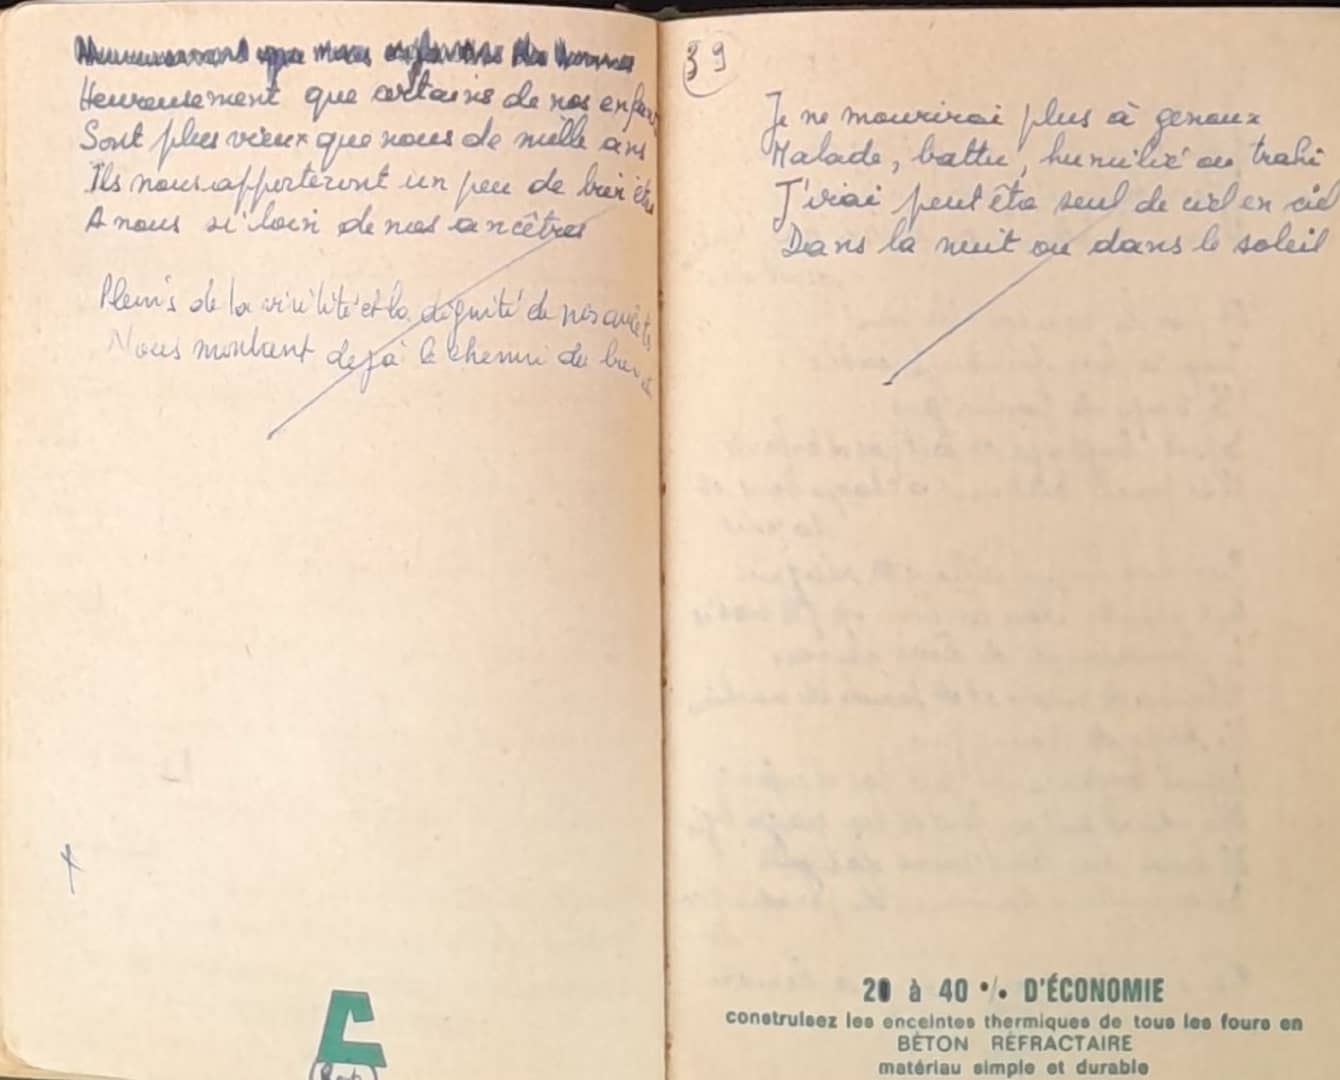 Heureusement que certains de nos enfants
Sont plus vieux que nous de mille ans
Ils nous apporteront un peu de bien être
A nous si loin de nos ancêtres
Pleins de la virilité et la dignité de nos ancêt
Nous montant déjà le chemin du
39
Je ne mourirai plus à genoux
Malade, battu, humilié ou trahi
J'irai peut être seul de ciel en ciel
Dans la nuit ou dans le soleil
20 à 40 % D'ÉCONOMIE
construisez les enceintes thermiques de tous les fours en
BÉTON RÉFRACTAIRE
matériau simple et durable